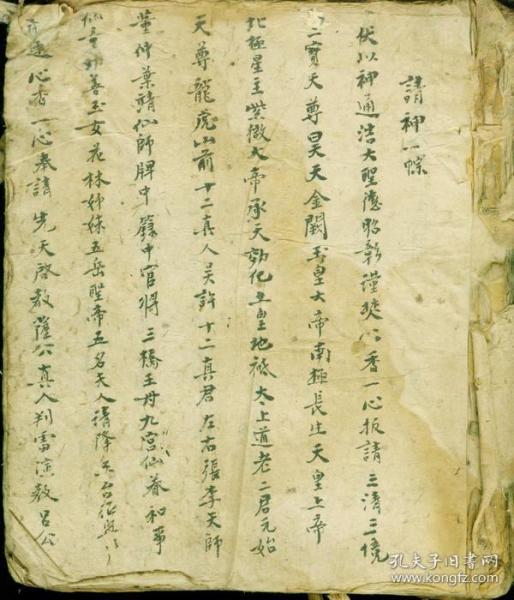 請神一樑
伏以神通浩大聖德昭彰謹焚心香一心拜請三清三境
三寶天尊昊天金闕玉皇大帝南極長生天皇上帝
北極星主紫微大帝承天効化土皇地祇太上道老二君元始
天尊龍虎山前十二真人吳許十二真君左右張李天師
董仲葉靖仙師牌中籙中官將三橋王母九宮仙眷和事
玉女花林姊妹五岳聖帝五名夫人請降
心香一心奉請先天啓教薩公真人判雷演教吕公
孔夫子旧书网
www.kongfz.com